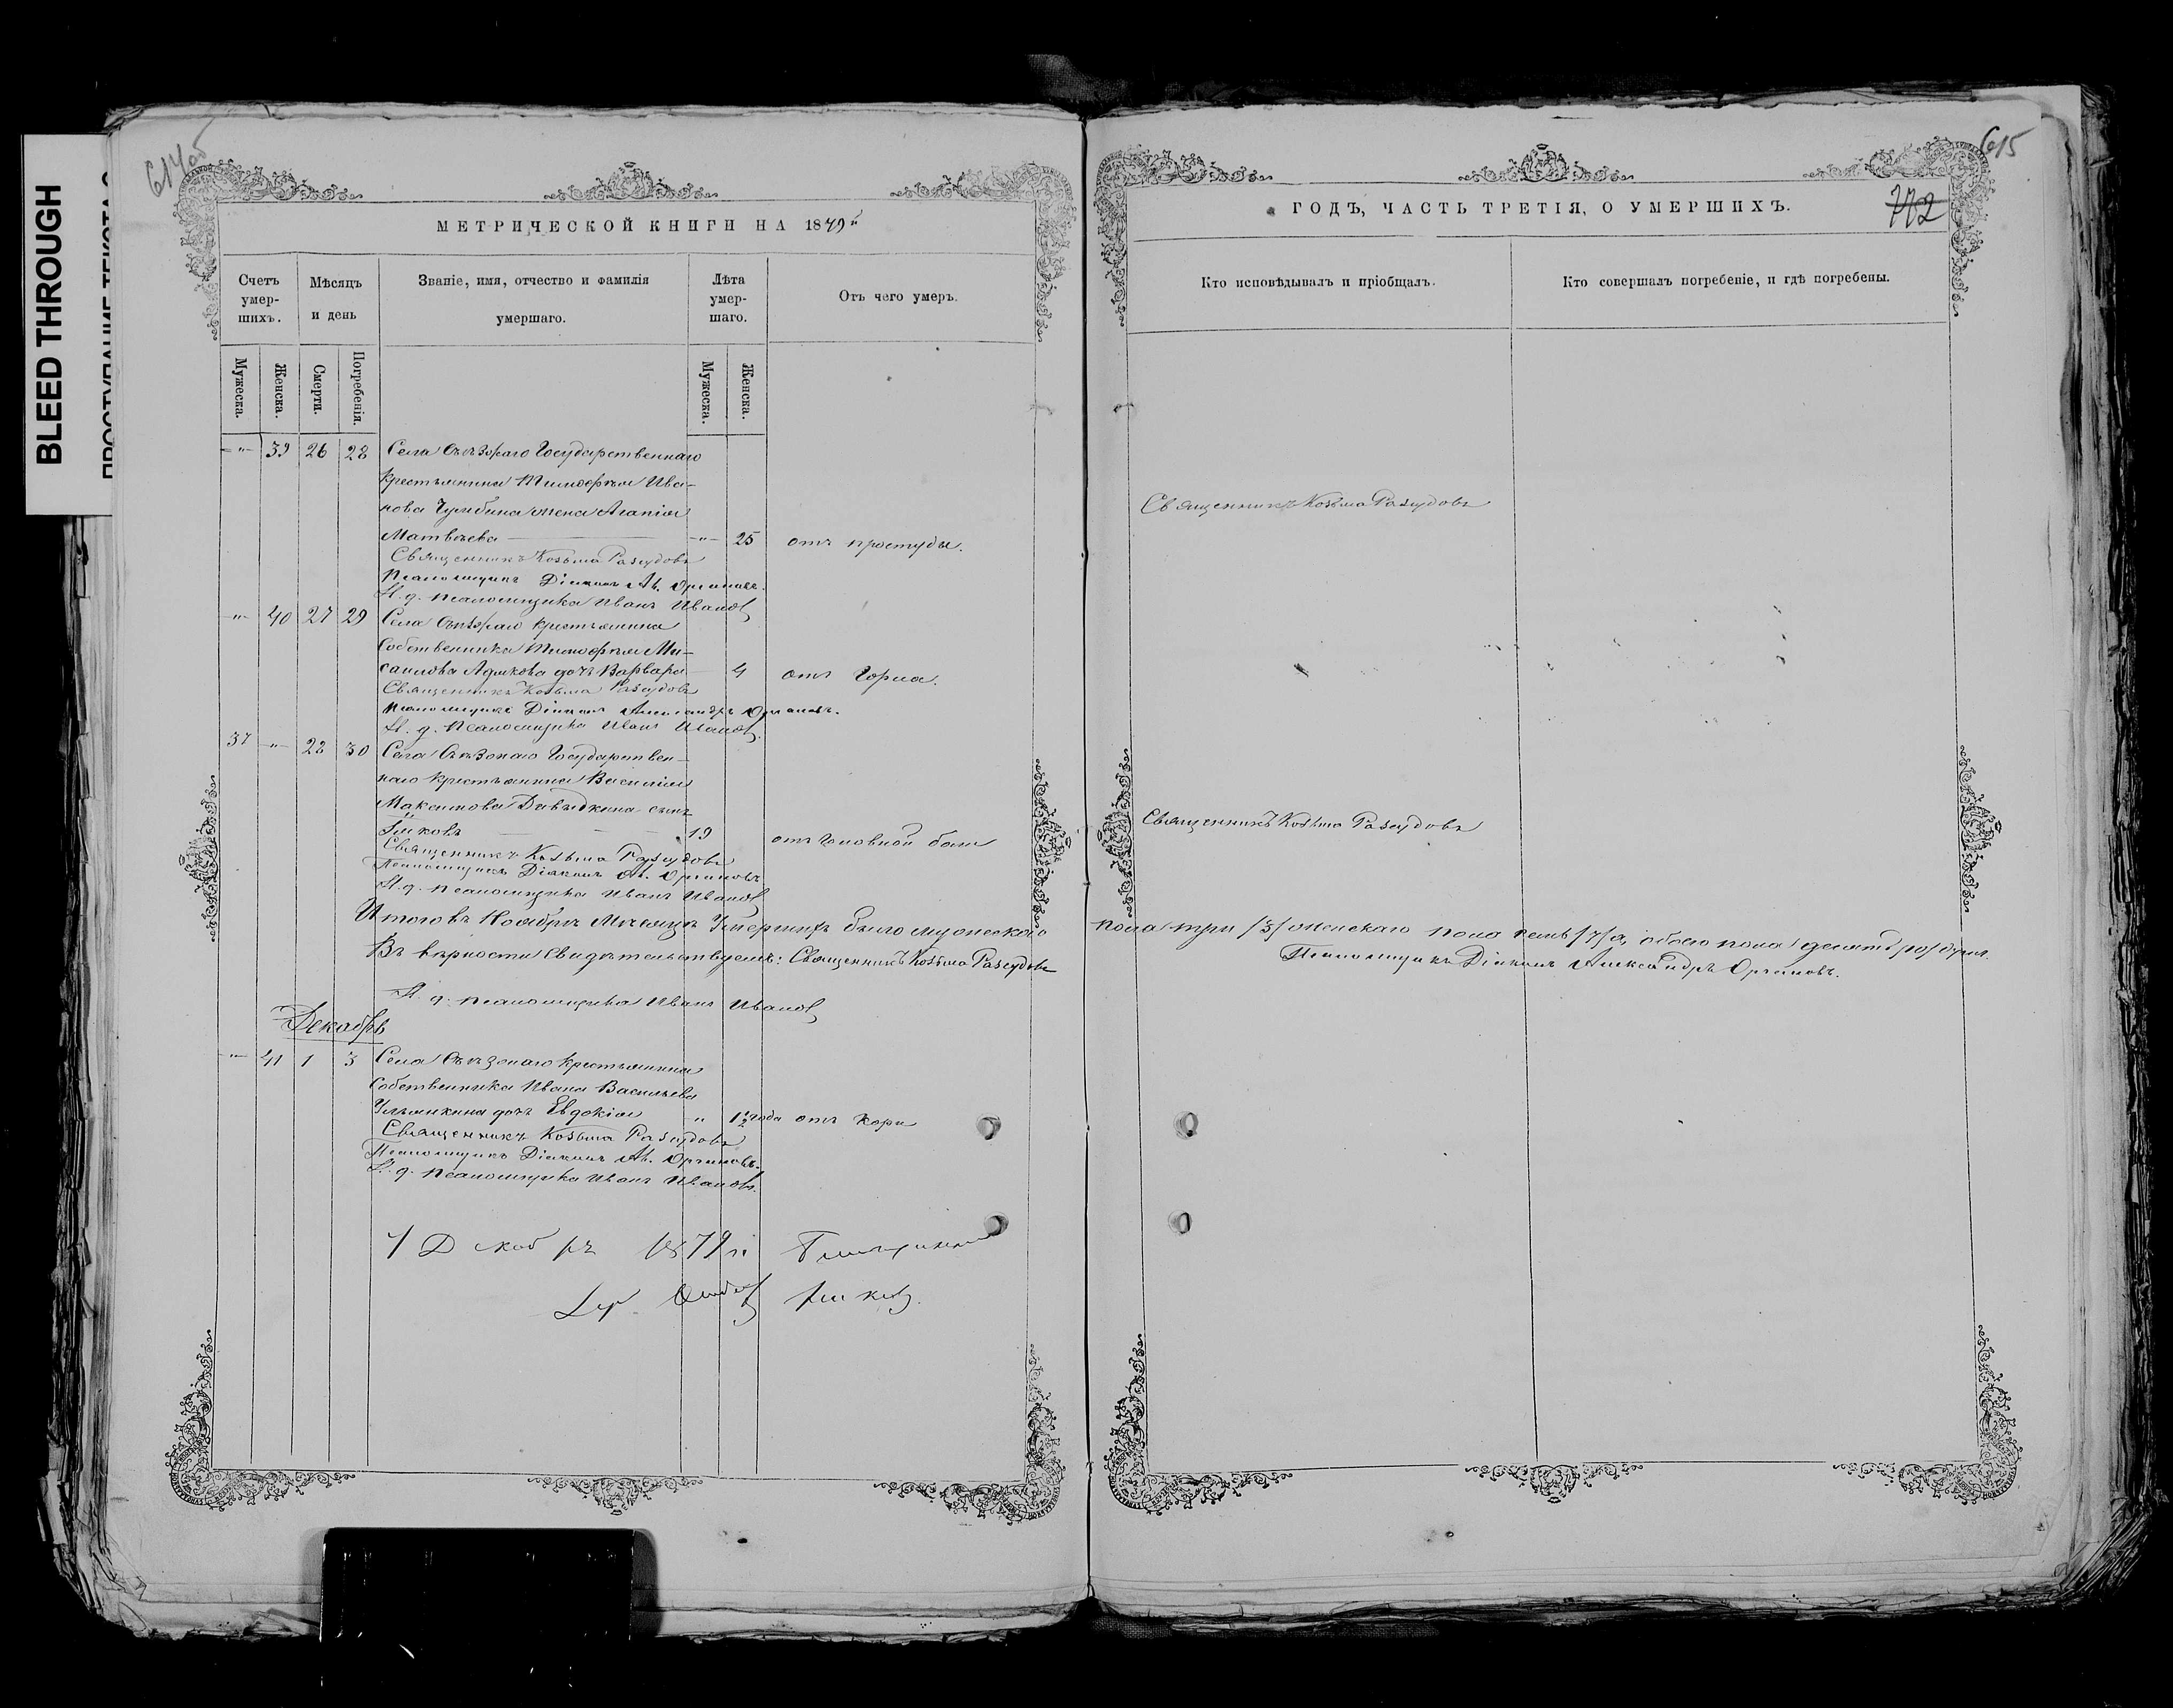 BLEED THROUGH
614об
МЕТРИЧЕСКОЙ КНИГИ НА 1879й
Счетъ умер-шихъ.
Мѣсяцъ и день
Званіе, имя, отчество и фамилія умершаго.
Лѣта умер-шаго.
Отъ чего умеръ.
Мужеска.
Женска.
Смерти.
Погребенія.
Мужеска.
Женска.
-"- 39 26 28 Села Съѣзжаго Государственнаго
крестьянина Тимофѣя Ива-
нова Чумбина жена Агапія
Матвѣева -"- 25 отъ простуды.
Священникъ Козьма Разсудовъ
Псаломщикъ Діаконъ Ал. Орлановъ.
И. д. псаломщика Иванъ Ивановъ
-"- 40 27 29 Села Съѣзжаго крестьянина
Собственника Тимофѣя Ми-
саилова дочь Варвара 4 отъ Горла.
Священникъ Козьма Разсудовъ
Псаломщикъ Діаконъ Александръ
И. д. Псаломщика Иванъ Ивановъ.
37 -"- 28 30 Села Съѣзжаго Государствен-
наго крестьянина Василія
Максимова Давыдкина сынъ
Іяковъ 19 отъ головной боли
Священникъ Козьма Разсудовъ
Псаломщикъ Діаконъ Ал.
И. д. псаломщика Иванъ Ивановъ
Итого въ Ноябрѣ Мѣсяцѣ Умершихъ было мужескаго
Въ вѣрности свидѣтельствуемъ: Священникъ Козьма Разсудовъ
И. д. псаломщика Иванъ Ивановъ
Декабрь
-"- 41 1 3 Села Съѣзжаго крестьянина
Собственника Ивана Васильева
Ульянкина дочь Евдокія " 1½ года отъ кори
Священникъ Козьма Разсудовъ
Псаломщикъ Діаконъ Ал.
И. д. псаломщика Иванъ Ивановъ.
Декабрь 1879
615
772
ГОДЪ, ЧАСТЬ ТРЕТІЯ, О УМЕРШИХЪ.
Кто исповѣдывалъ и пріобщалъ.
Кто совершалъ погребеніе, и гдѣ погребены.
Священникъ Козьма Разсудовъ
Священникъ Козьма Разсудовъ
пола три /3/ женскаго пола семь /7/ а обоего пола десять /10/ душъ.
Псаломщикъ Діаконъ Александръ